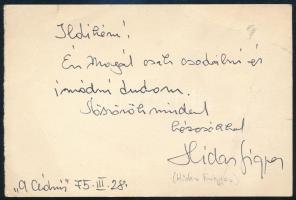 Ildikóm!
Én Magát csak csodálni és
imádni tudom.
mindent
csókkal
Hidas Frigyes
(Hidas Frigyes)
"A Cédrus" 75. III. 28.